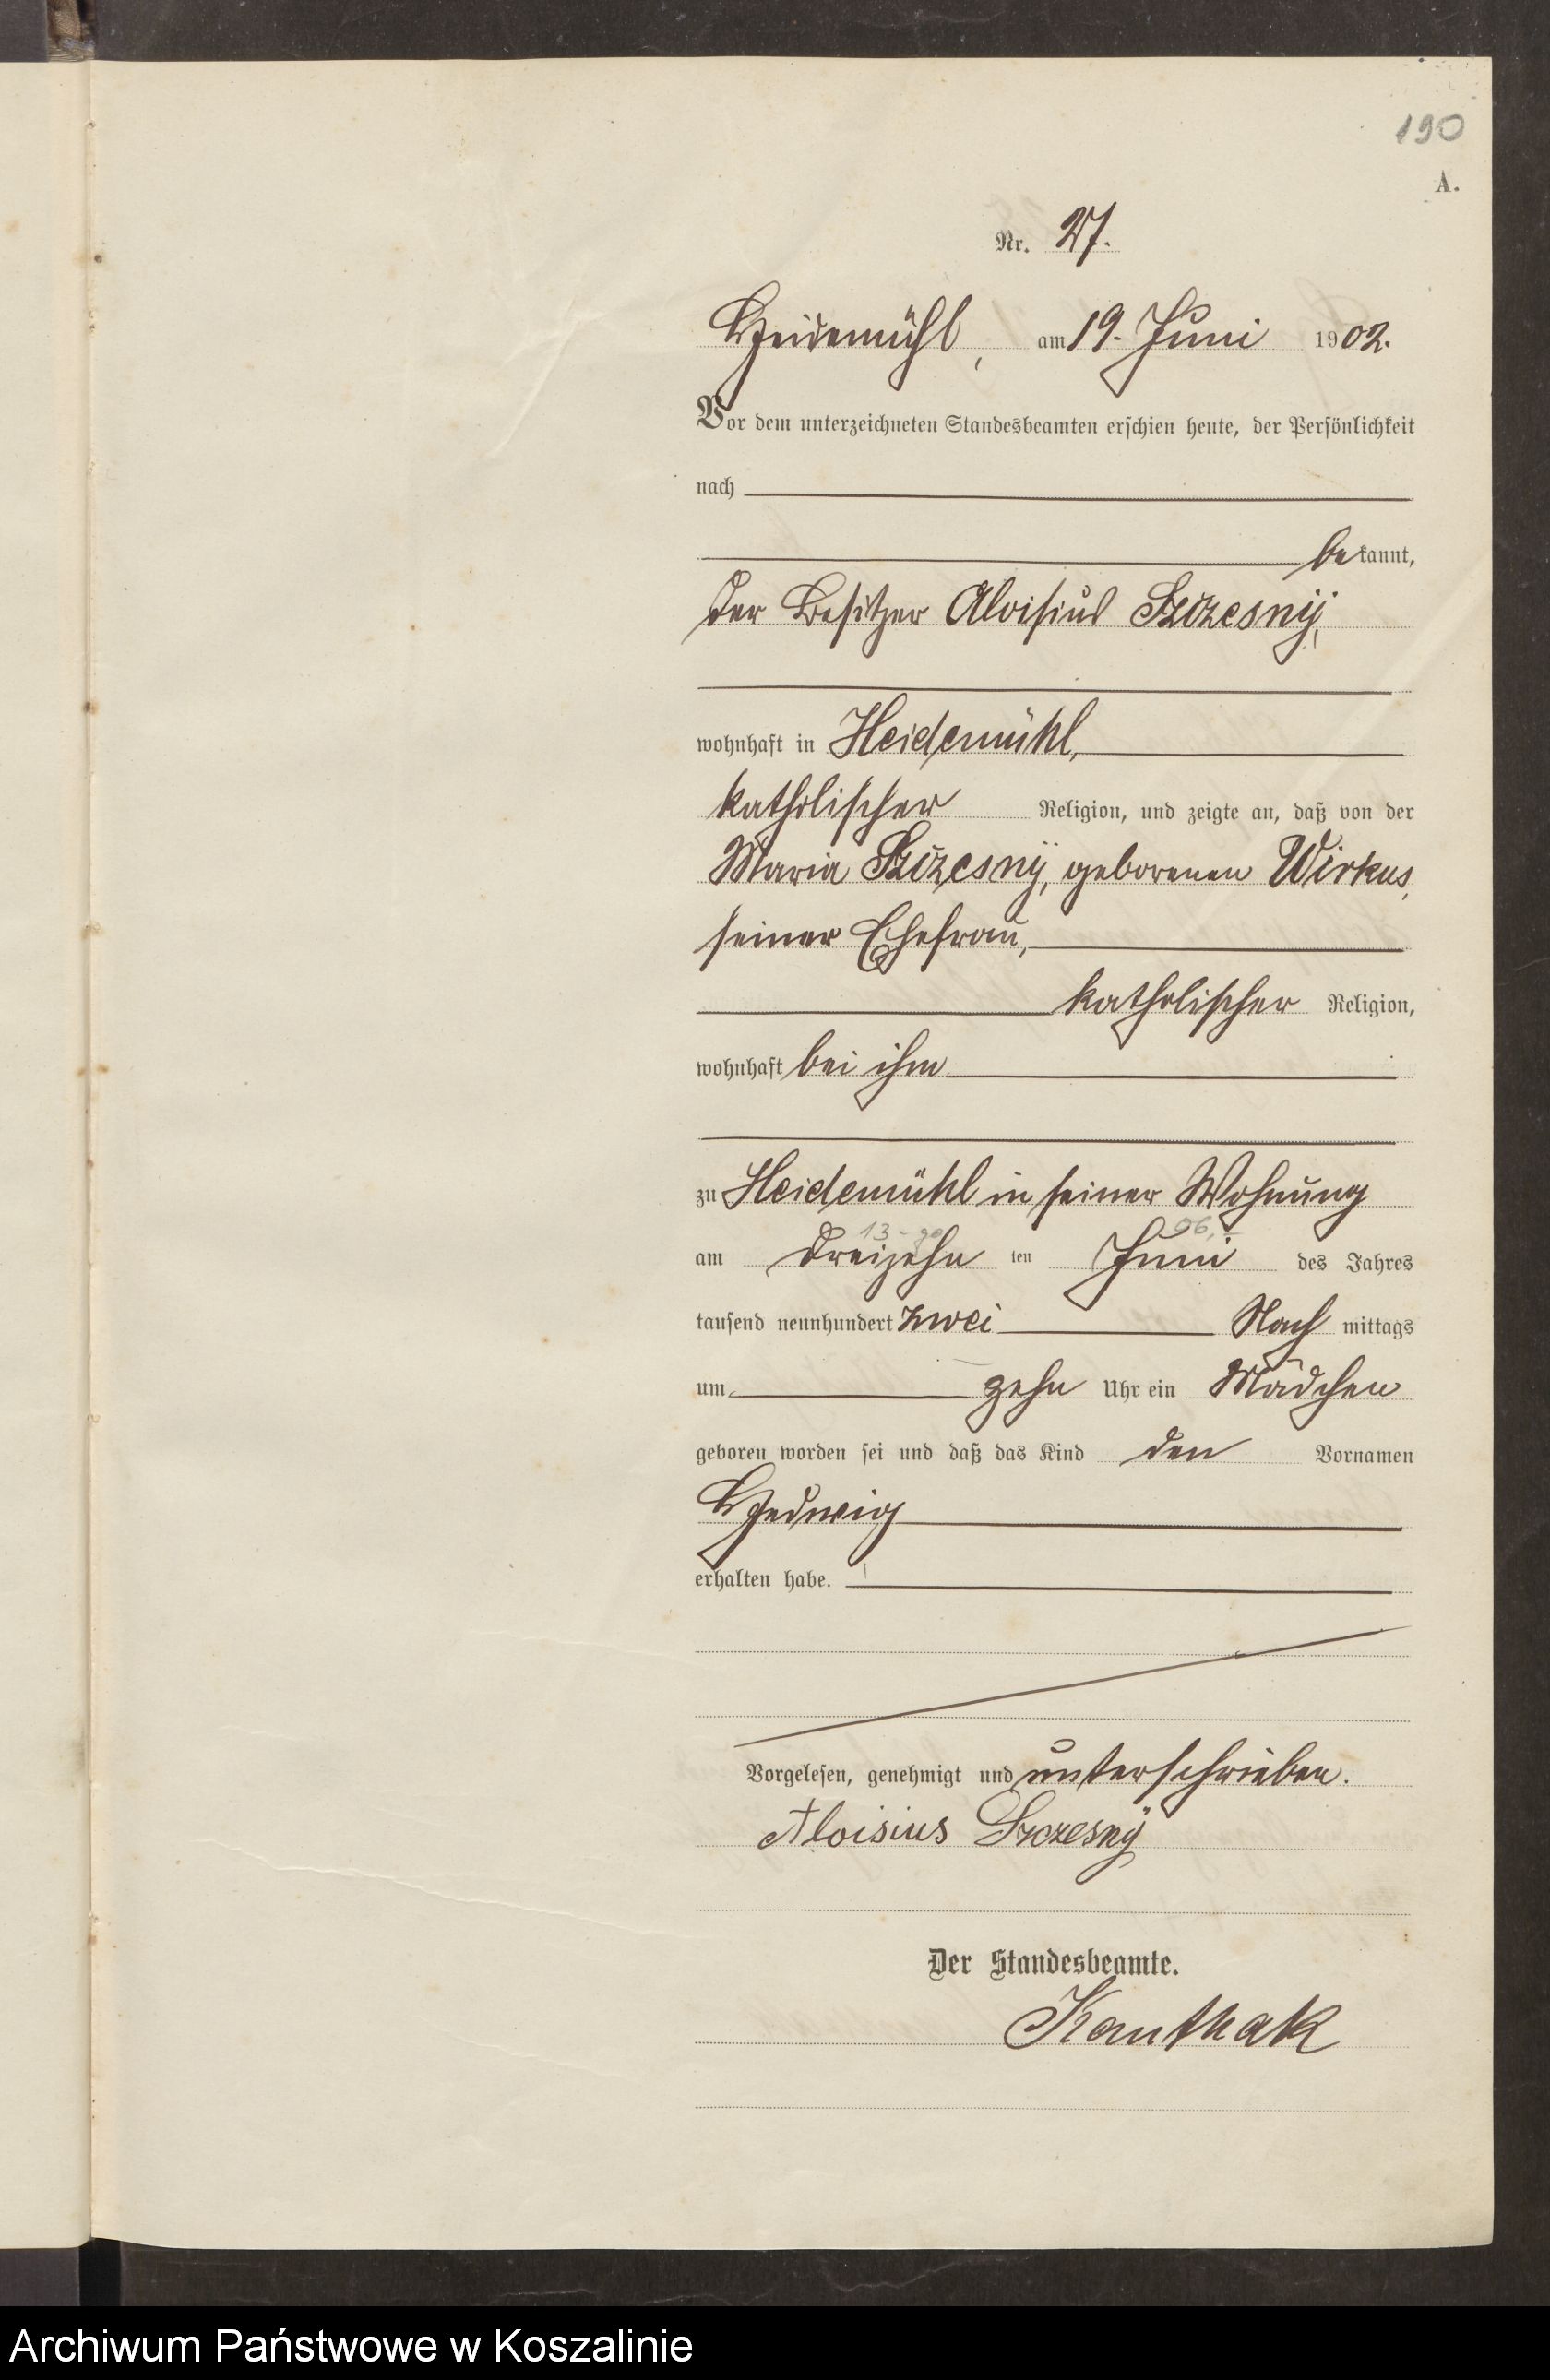 190
A.
Nr. 27.
Heidemühl, am 19. Juni 1902.
Vor dem unterzeichneten Standesbeamten erschien heute, der Persönlichkeit
nach
bekannt,
der Besitzer Aloisius Szczesny,
wohnhaft in Heidemühl,
katholischer Religion, und zeigte an, daß von der
Maria Szczesny, geborenen Wirkus,
seiner Ehefrau,
katholischer Religion,
wohnhaft bei ihm
zu Heidemühl in seiner Wohnung
13-go 06.
am dreizehn ten Juni des Jahres
tausend neunhundert zwei Nach mittags
um zehn Uhr ein Mädchen
geboren worden sei und daß das Kind den Vornamen
Hedwig
erhalten habe.
Vorgelesen, genehmigt und unterschrieben.
Aloisius Szczesny
Der Standesbeamte.
Kauthak
Archiwum Państwowe w Koszalinie